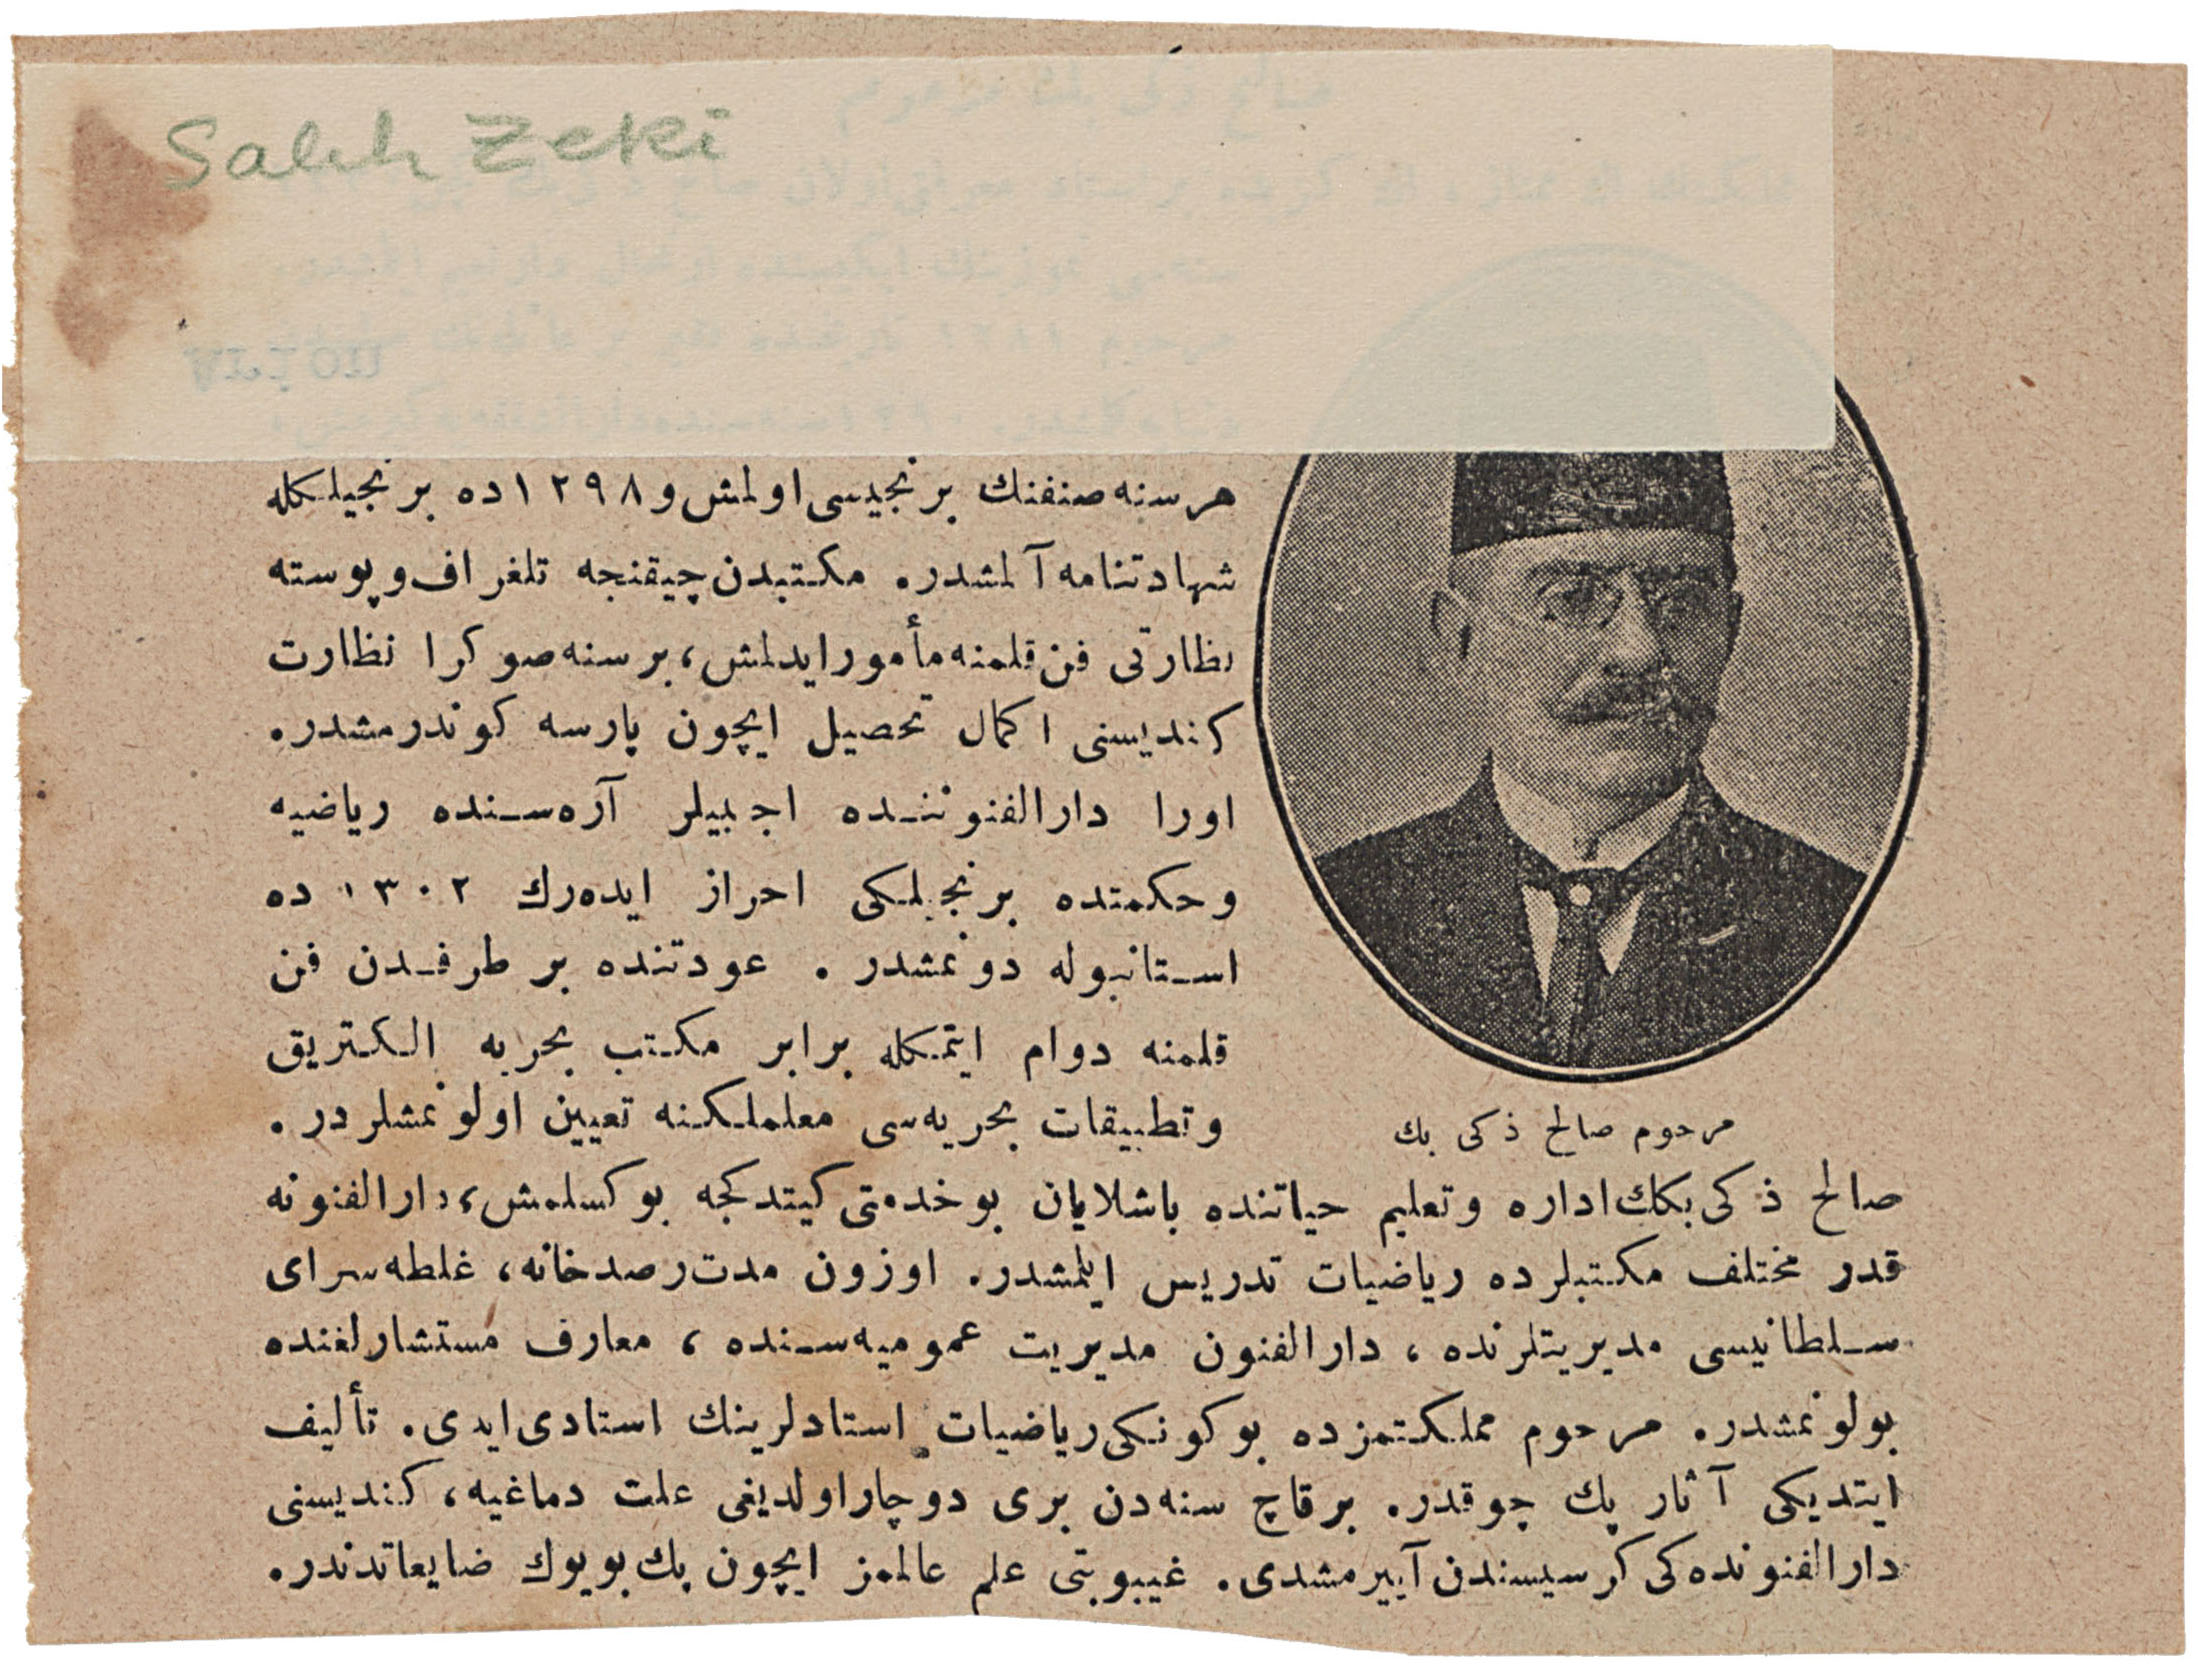 Salih Zeki
صالح ذكی بك مرحوم
هر سنه صنفنك برنجیسی اولمش و ١٢٩٨ده برنجیلكله
شهادتنامه آلمشدر. مكتبدن چیقنجه تلغراف و پوسته
نظارتی فن قلمنه مأمور ایدلمش، بر سنه صوكرا نظارت
كندیسنی اكمال تحصیل ایچون پارسه كوندرمشدر.
اورا دارالفنوننده اجنبیلر آره‌سنده ریاضیه
وحكمتده برنجیلكی احراز ایده‌رك ١٣٠٢ ده
استانبوله دونمشدر . عودتنده بر طرفدن فن
قلمنه دوام ایتمكله برابر مكتب بحریه الكتریق
وتطبیقات بحریه‌سی معلملكنه تعیین اولونمشلردر .
مرحوم صالح ذكی بك
صالح ذكی بكك اداره وتعلیم حیاتنده باشلایان بو خدمتی كیتدكجه یوكسلمش، دارالفنونه
قدر مختلف مكتبلرده ریاضیات تدریس ایلمشدر. اوزون مدت رصدخانه، غلطه‌سرای
سلطانیسی مدیریتلرنده ، دارالفنون مدیریت عمومیه‌سنده ، معارف مستشارلغنده
بولونمشدر. مرحوم مملكتمزده بوكونكی ریاضیات استادلرینك استادی ایدی. تألیف
ایتدیكی آثار پك چوقدر. برقاچ سنه‌دن بری دوچار اولدیغی علت دماغیه، كندیسنی
دارالفنونده‌كی كرسیسندن آییرمشدی. غیبوبتی علم عالمز ایچون پك بویوك ضایعاتدندر.